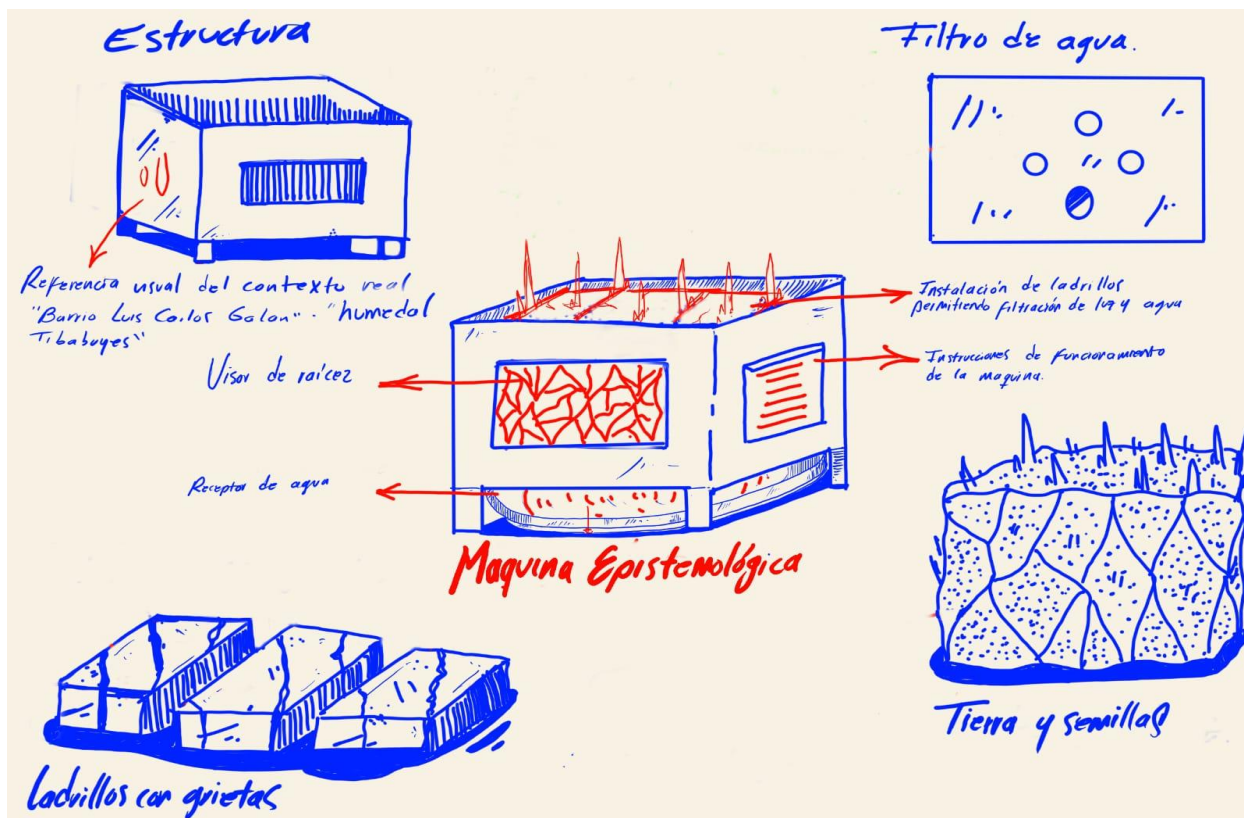 Estructura
Filtro de agua.
Referencia visual del contexto real
"Barrio Luis Carlos Galan". "humedal
Tibabuyes"
Instalación de ladrillos
permitiendo filtración de luz y agua
Visor de raíces
Instrucciones de funcionamiento
de la maquina.
Receptor de agua
Maquina Epistemológica
Tierra y semillas
Ladrillos con grietas